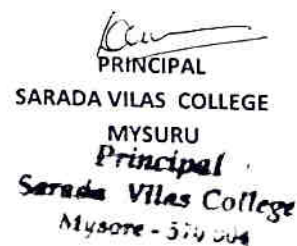 PRINCIPAL
SARADA VILAS COLLEGE
MYSURU
Principal
Sarada Vilas College
Mysore - 570 004